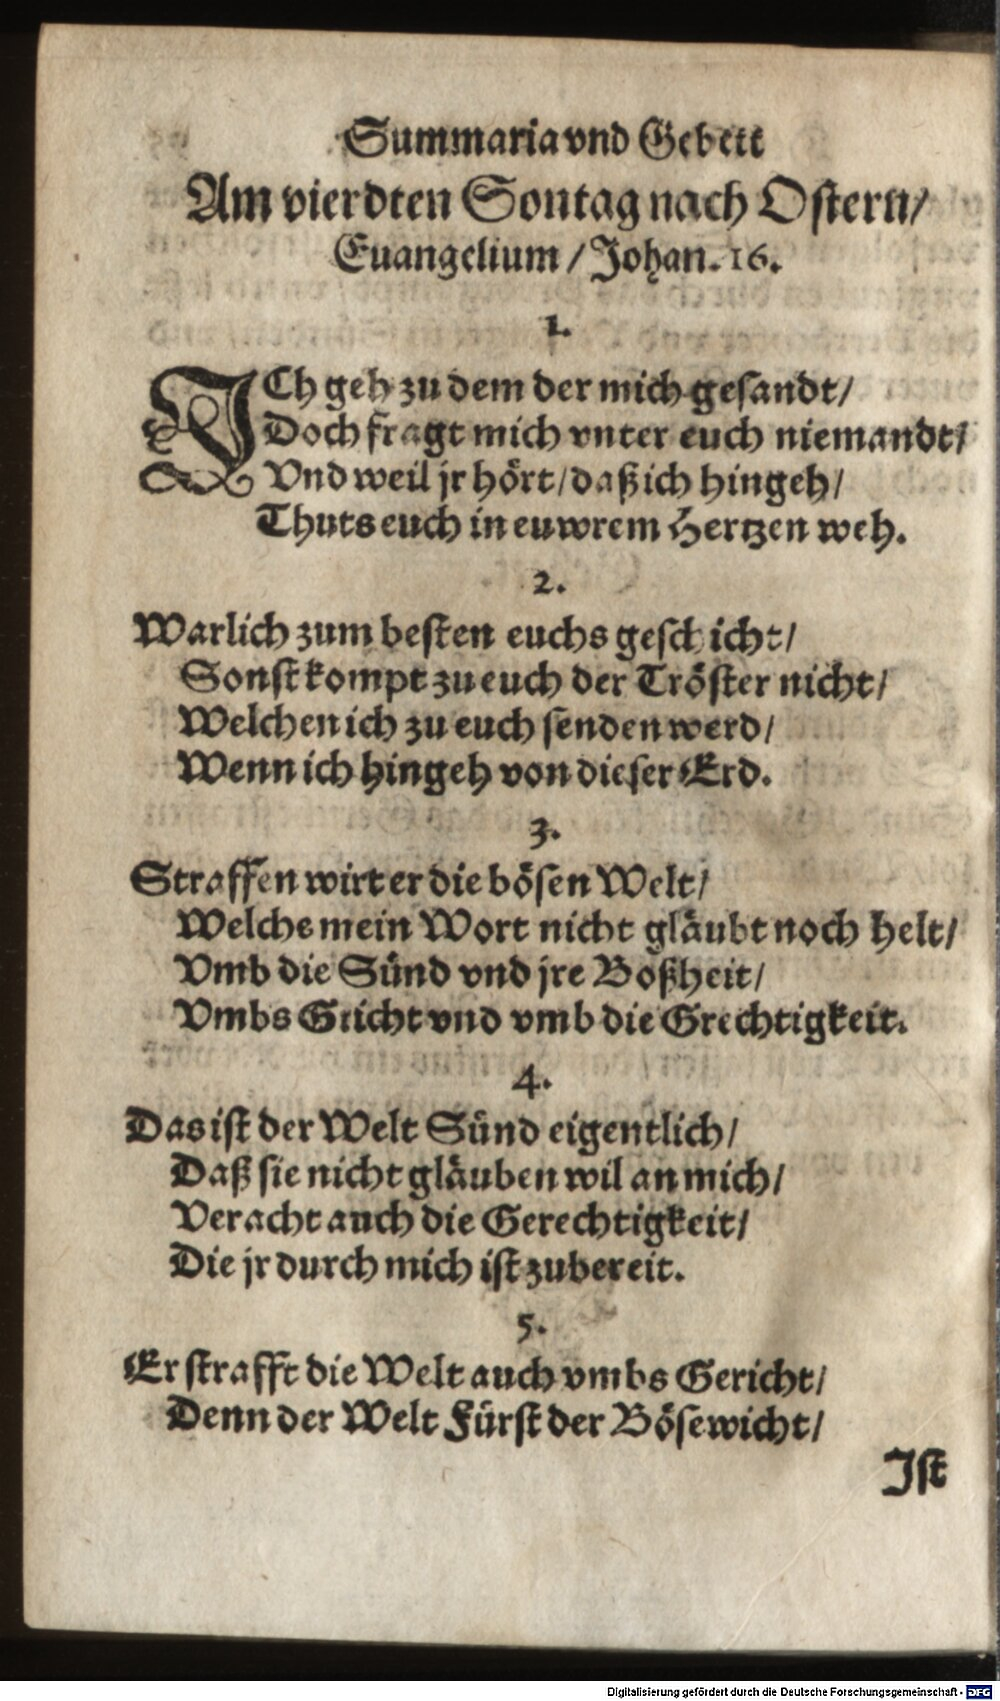 Summaria vnd Gebett
Am vierdten Sontag nach Ostern/
Euangelium/Johan. 16.
1.
ICh geh zu dem der mich gesandt/
Doch fragt mich vnter euch niemandt/
Vnd weil jr hört/daß ich hingeh/
Thuts euch in euwrem Hertzen weh.
2.
Warlich zum besten euchs geschicht/
Sonst kompt zu euch der Tröster nicht/
Welchen ich zu euch senden werd/
Wenn ich hingeh von dieser Erd.
3.
Straffen wirt er die bösen Welt/
Welche mein Wort nicht gläubt noch helt/
Vmb die Sünd vnd jre Boßheit/
Vmbs Gricht vnd vmb die Grechtigkeit.
4.
Das ist der Welt Sünd eigentlich/
Daß sie nicht gläuben wil an mich/
Veracht auch die Gerechtigkeit/
Die jr durch mich ist zubereit.
5.
Er strafft die Welt auch vmbs Gericht/
Denn der Welt Fürst der Bösewicht/
Ist
Digitalisierung gefördert durch die Deutsche Forschungsgemeinschaft - DFG